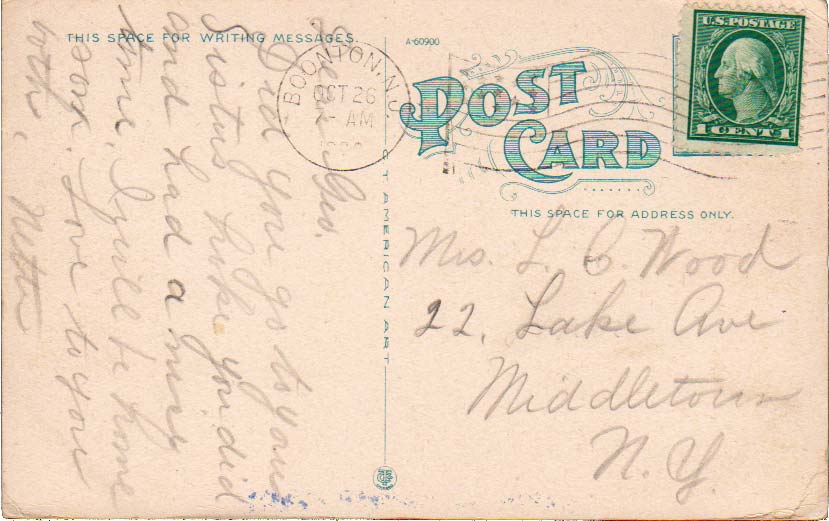 THIS SPACE FOR WRITING MESSAGES.
A-60900
POST
CARD
THIS SPACE FOR ADDRESS ONLY.
BOONTON, N.J.
OCT 26
AM
U.S. POSTAGE
1 CENT 1
CT AMERICAN ART
Dear Geo.
Did you go to your
Sisters hope you did
and had a nice
time, I will be home
soon. Love to you
both,
Nettie
Mrs. L. C. Wood
22, Lake Ave
Middletown
N. Y.